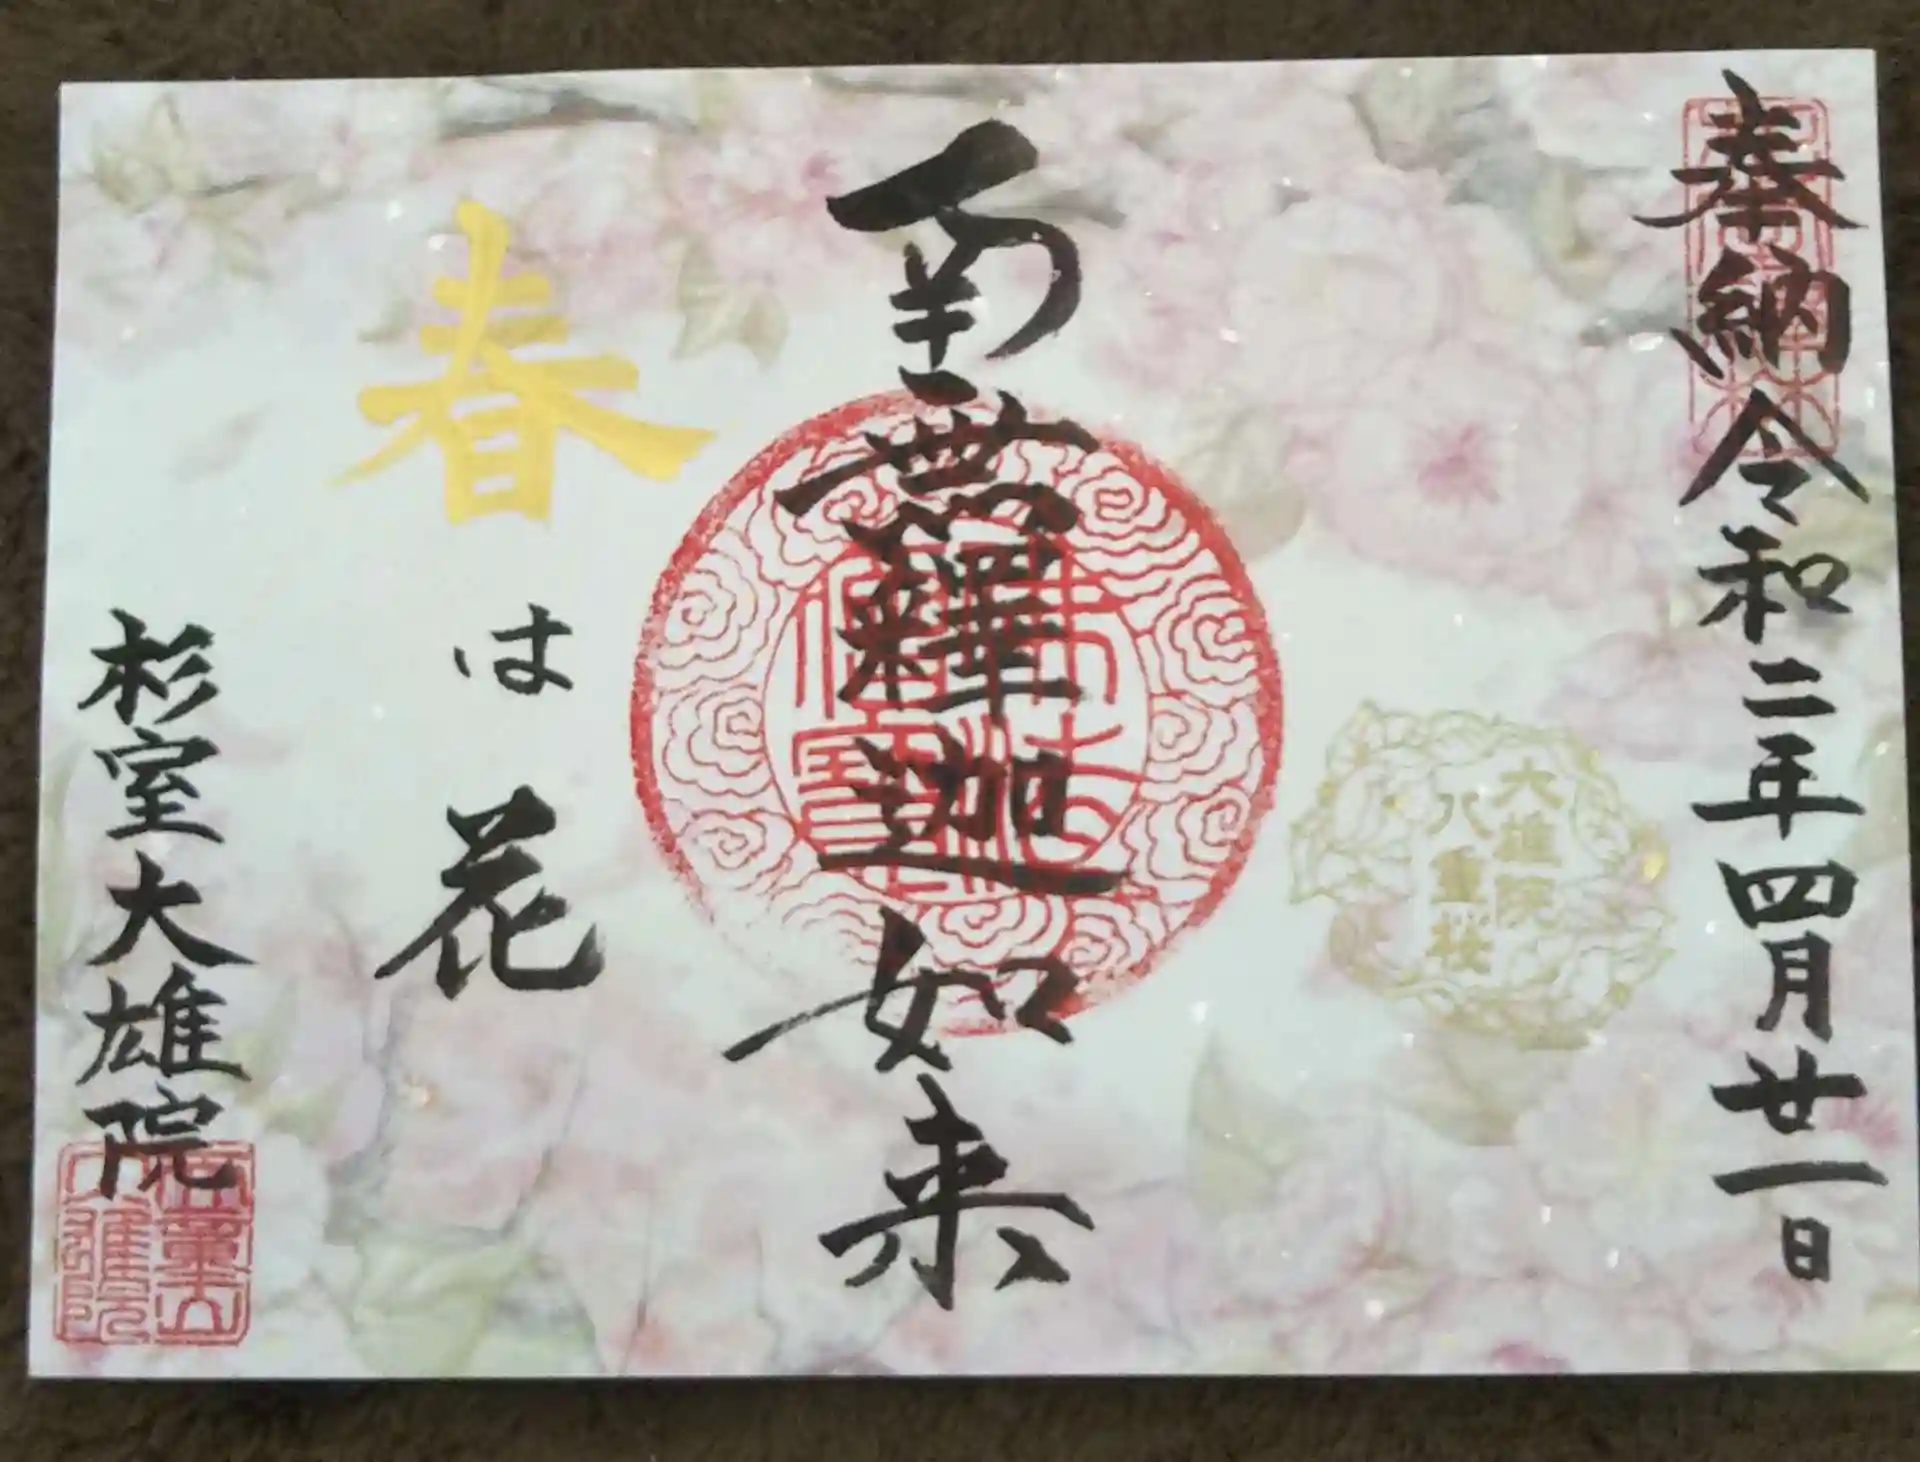 奉納 令和二年四月廿一日
大雄院
八重桜
南無釋迦如来
佛法
僧寳
春は花
杉室大雄院